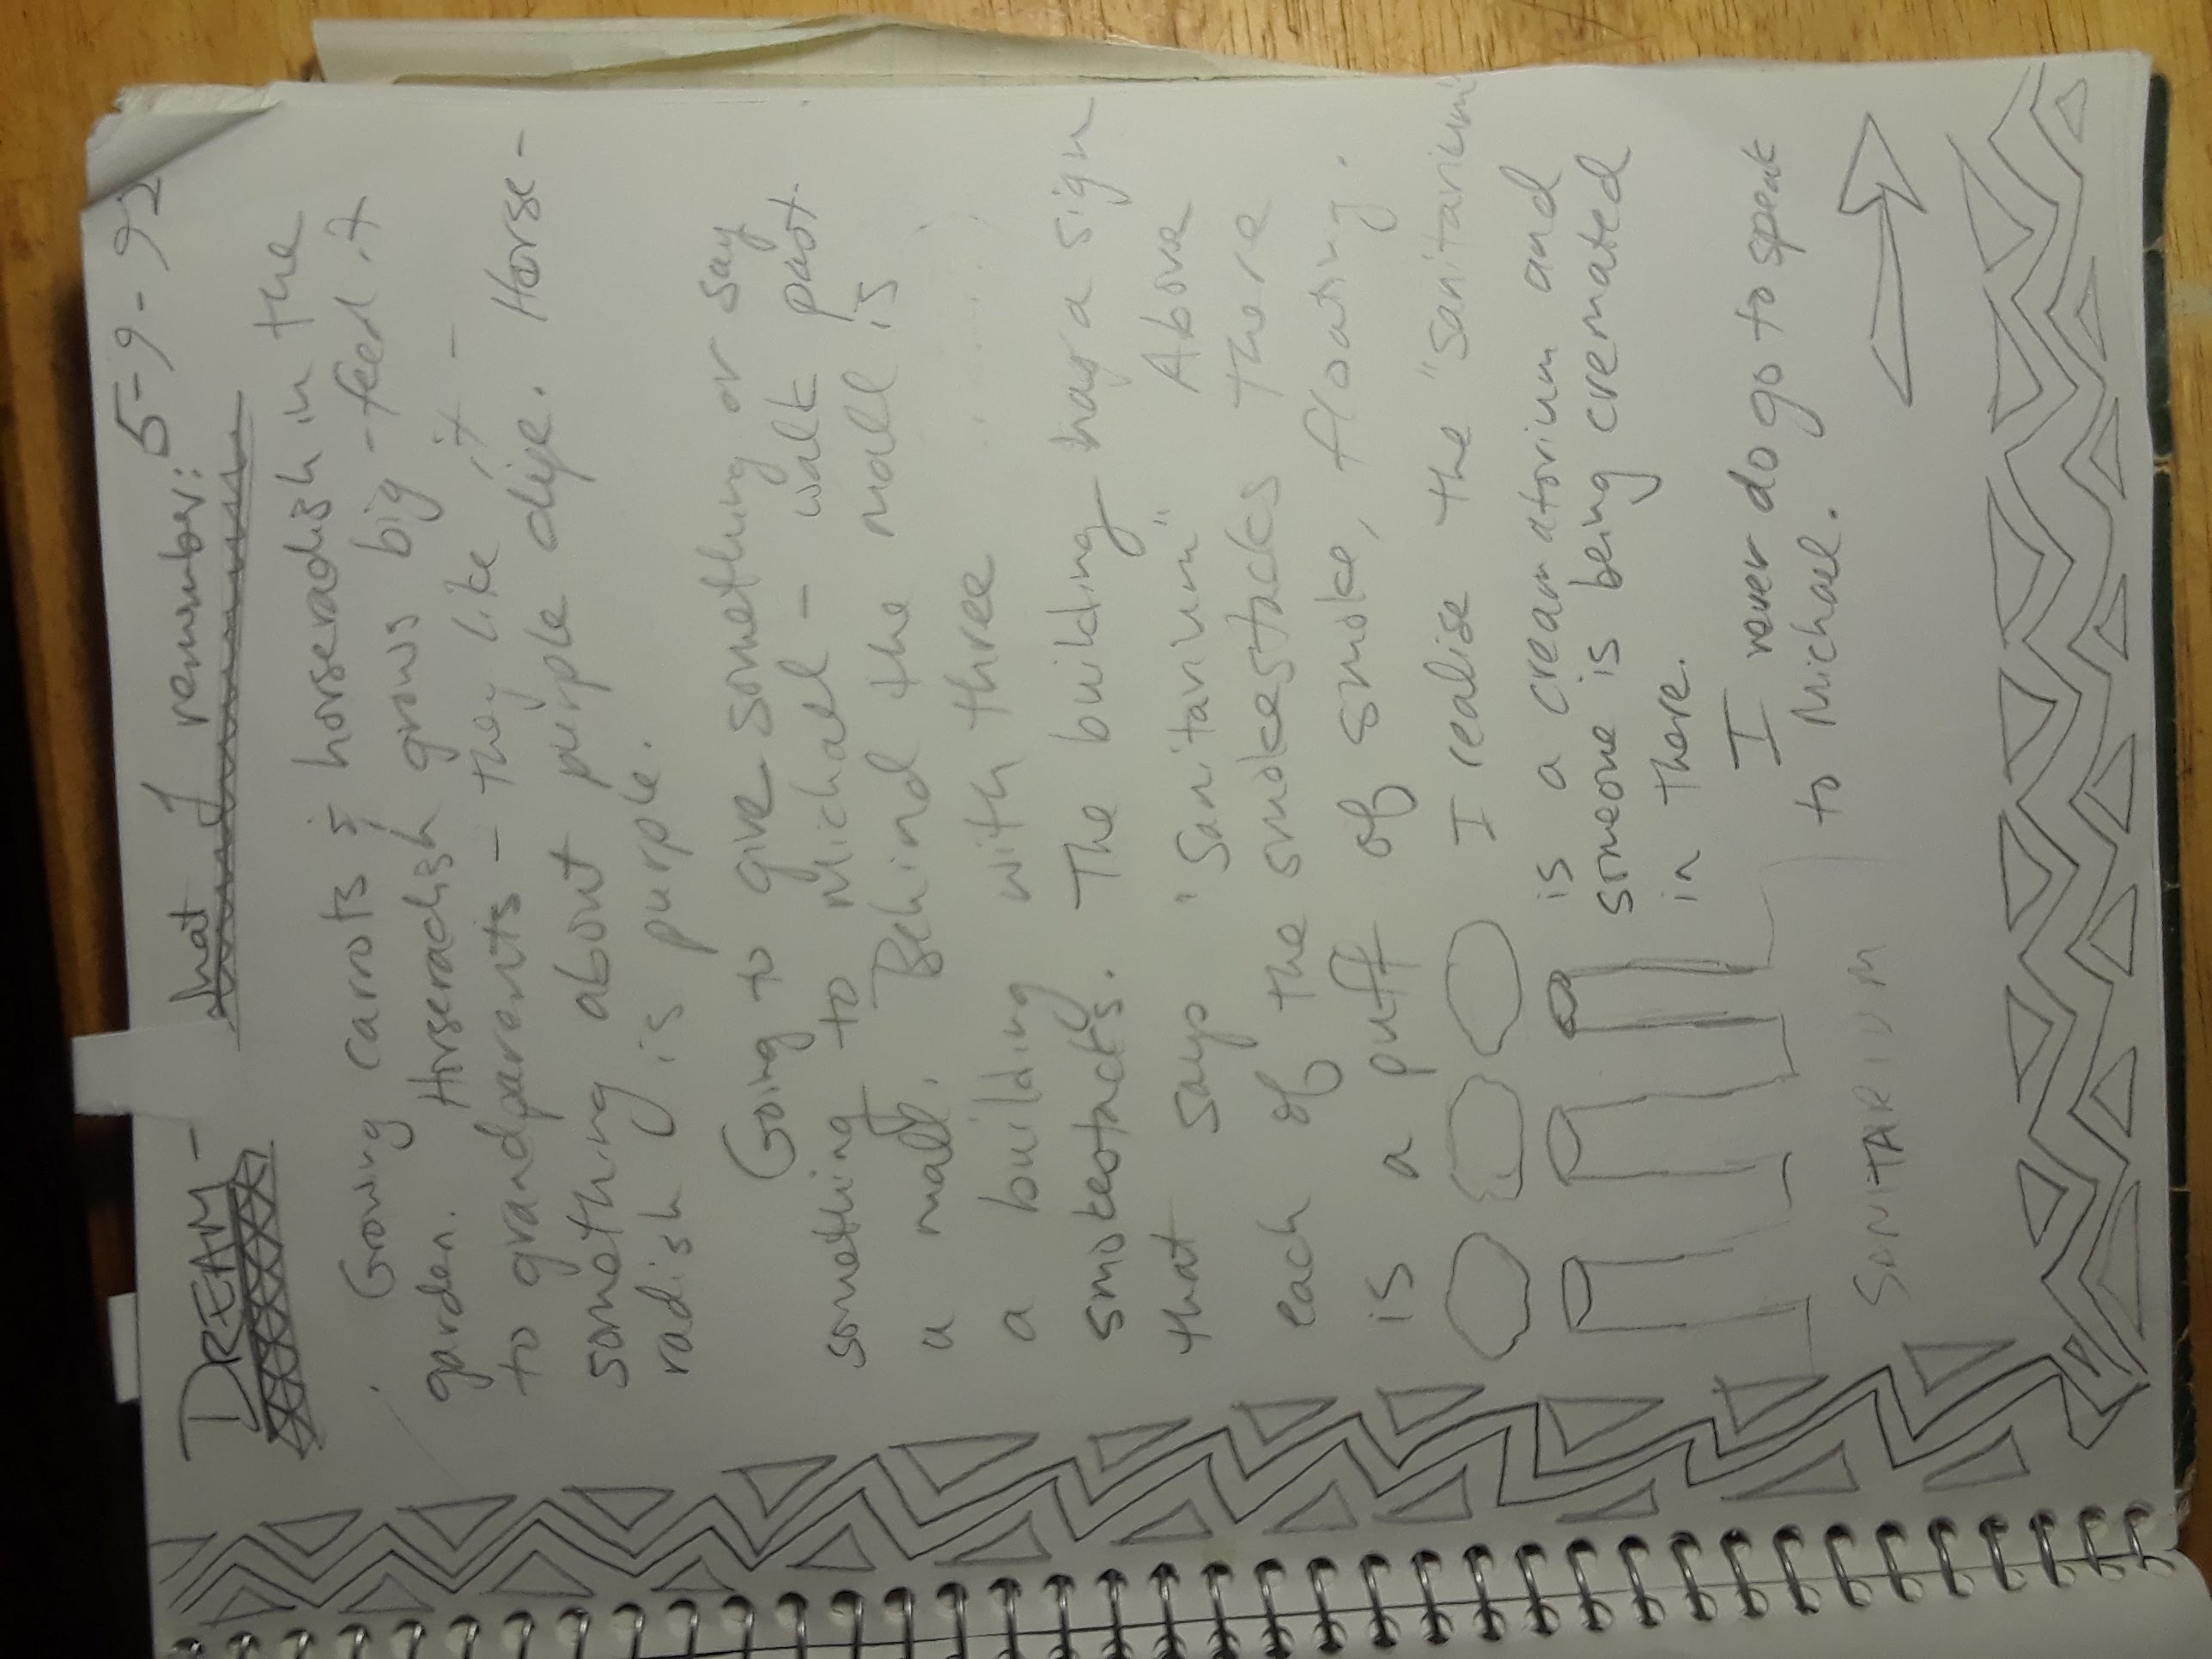 DREAM - what I remember: 5-9-92
Growing carrots & horseradish in the
garden. Horseradish grows big - feed it
to grandparents - they like it -
something about purple dye. Horse-
radish is purple.
Going to give something or say
something to Michael - walk past
a mall. Behind the mall is
a building with three
smokestacks. The building has a sign
that says "Sanitarium" Above
each of the smokestacks there
is a puff of smoke, floating.
I realise the "sanitarium
is a creamatorium and
someone is being cremated
in there.
I never do go to speak
to Michael.
SANITARIUM